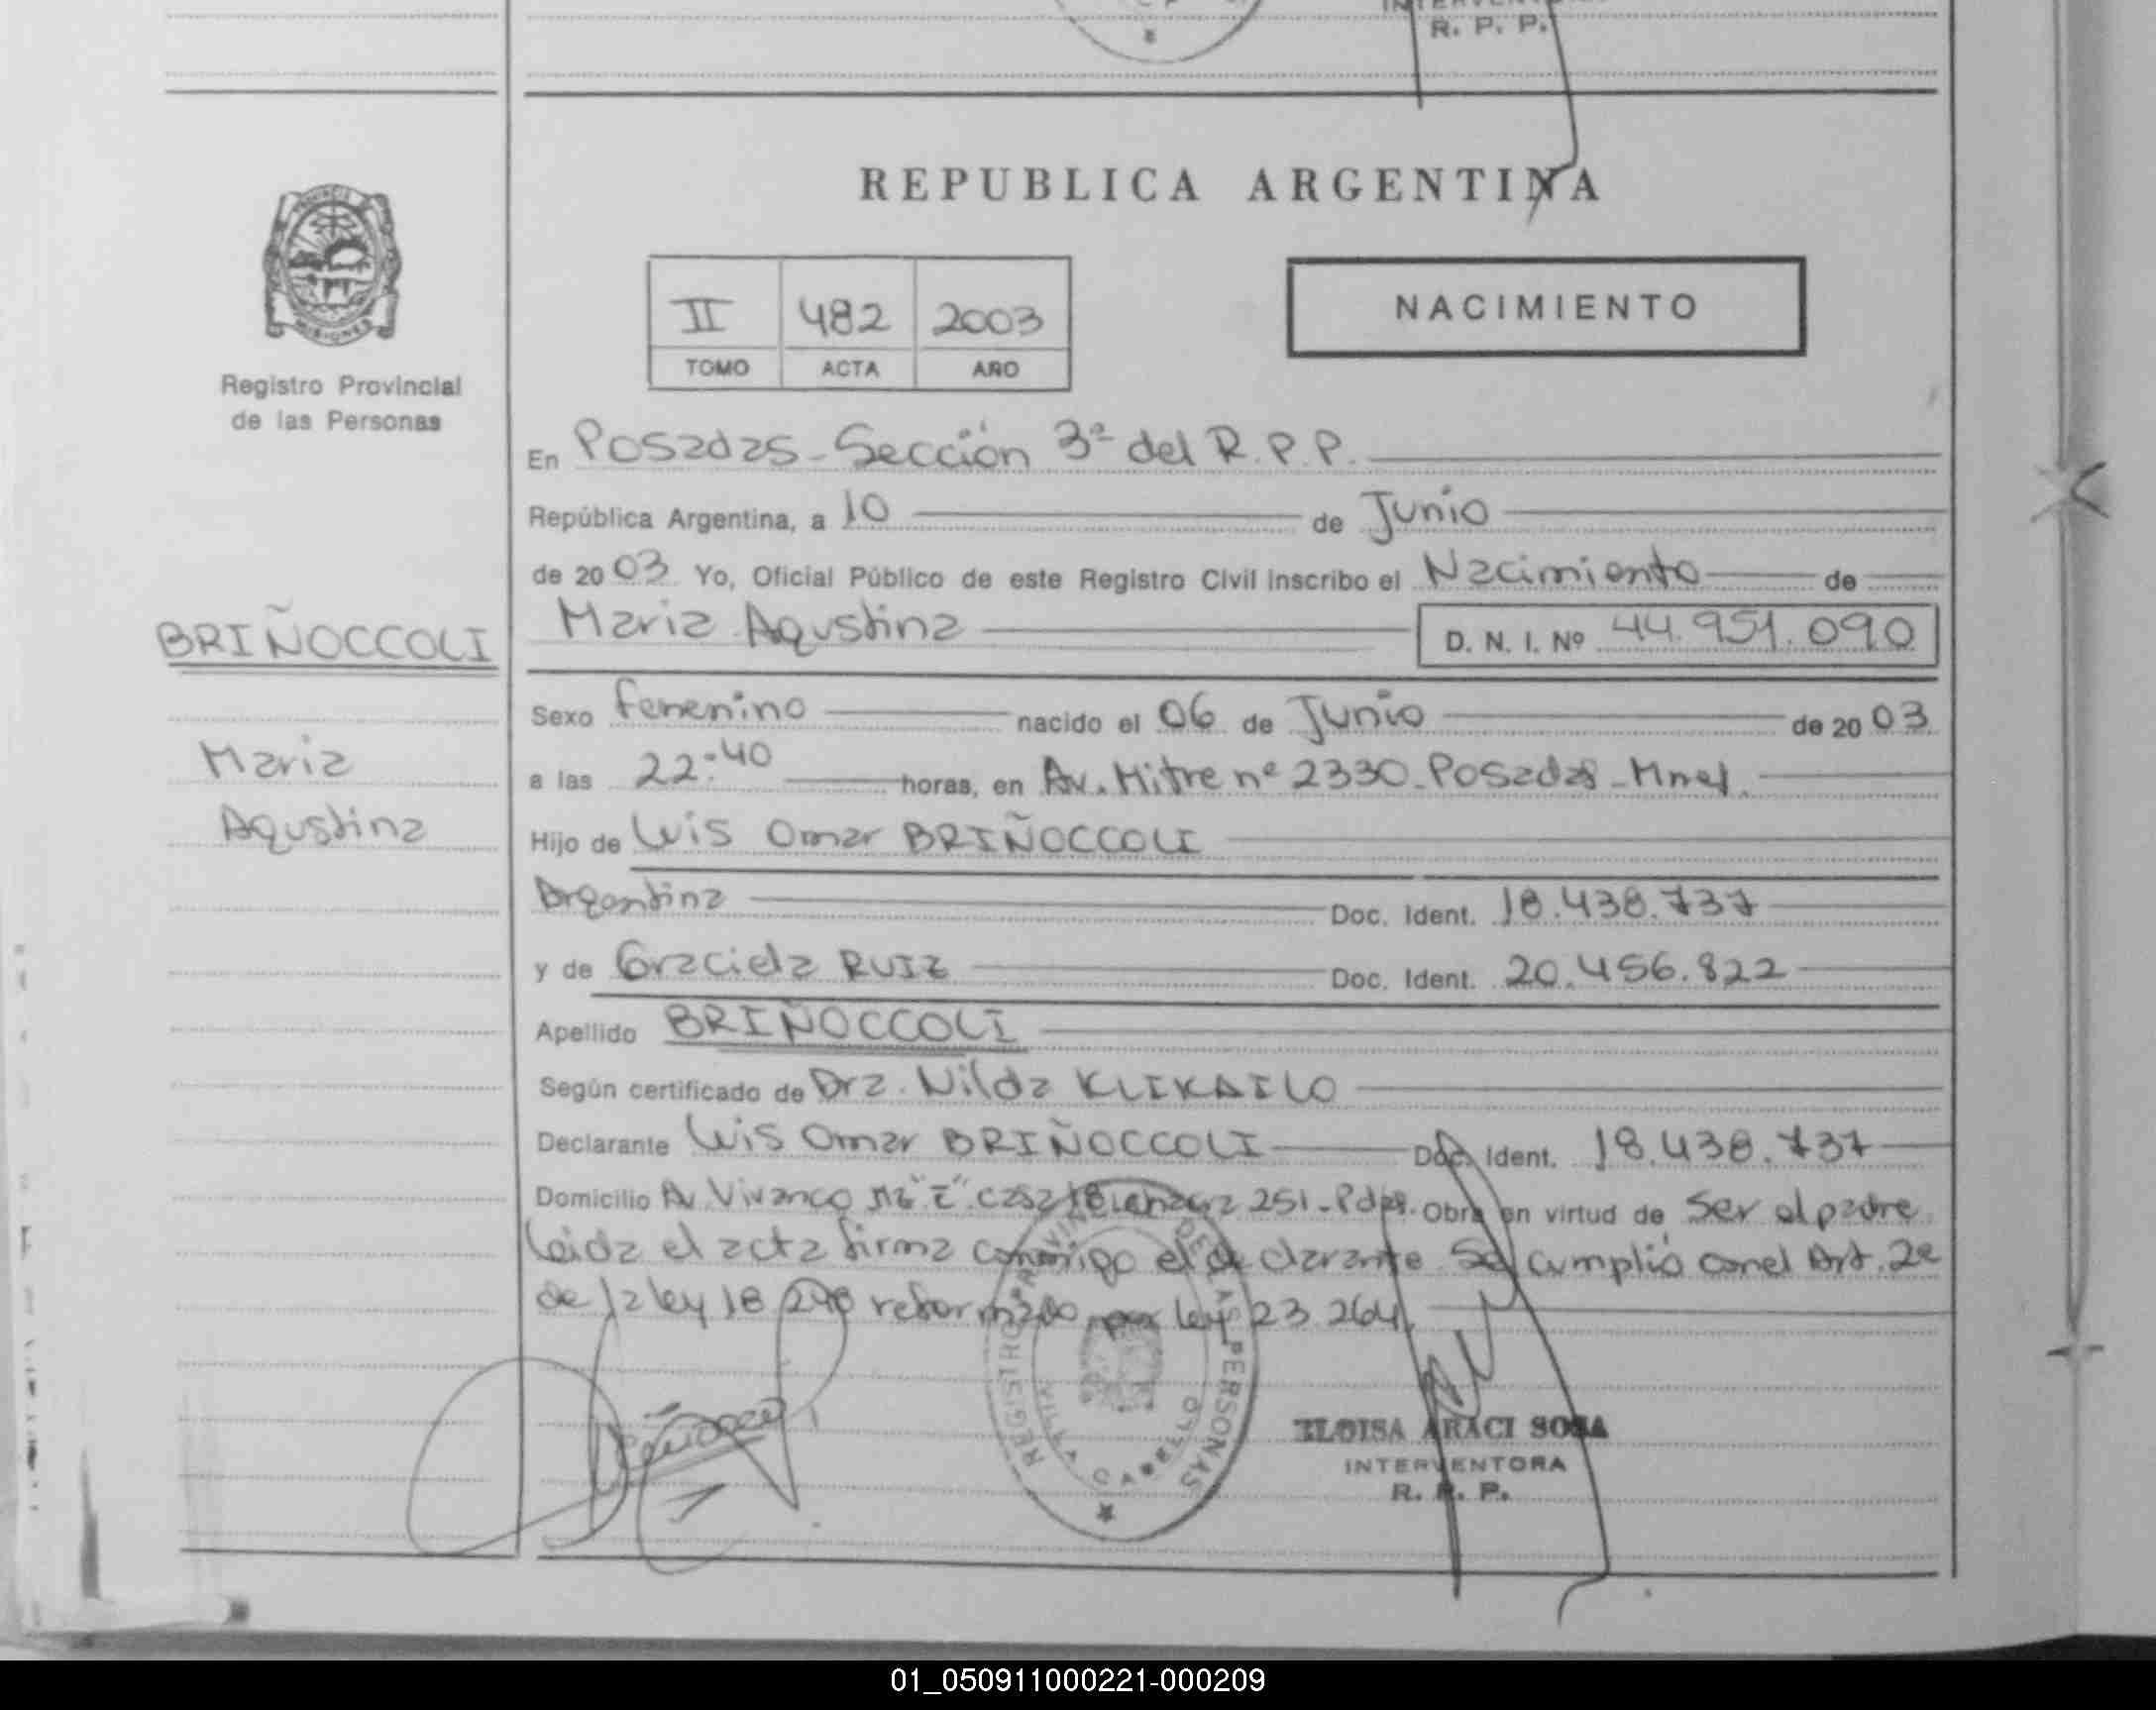 R. P. P.
REPUBLICA ARGENTINA
II 482 2003
TOMO ACTA AÑO
NACIMIENTO
MISIONES
Registro Provincial
de las Personas
En Posadas - Sección 3ª del R. P. P.
República Argentina, a 10 de Junio
de 2003 Yo, Oficial Público de este Registro Civil inscribo el Nacimiento de
BRIÑOCCOLI
Maria Agustina D. N. I. Nº 44.951.090
Sexo femenino nacido el 06 de Junio de 2003
Maria
a las 22:40 horas, en Av. Mitre nº 2330 - Posadas - Mnes.
Agustina
Hijo de Luis Omar BRIÑOCCOLI
Argentina Doc. Ident. 18.438.737
y de Graciela RUIZ Doc. Ident. 20.456.822
Apellido BRIÑOCCOLI
Según certificado de Dra. Nilda KLIKAILO
Declarante Luis Omar BRIÑOCCOLI Doc. Ident. 18.438.737
Domicilio Av. Vivanco casa 18 251 - Pdas. Obra en virtud de ser el padre
leida el acta firma conmigo el declarante Se cumplió con el Art. 2º
de la ley 18 248 reformado por ley 23 264.
REGISTRO PROVINCIAL DE LAS PERSONAS
VILLA CABELLO
ELOISA ARACI SOSA
INTERVENTORA
R. P. P.
01_050911000221-000209